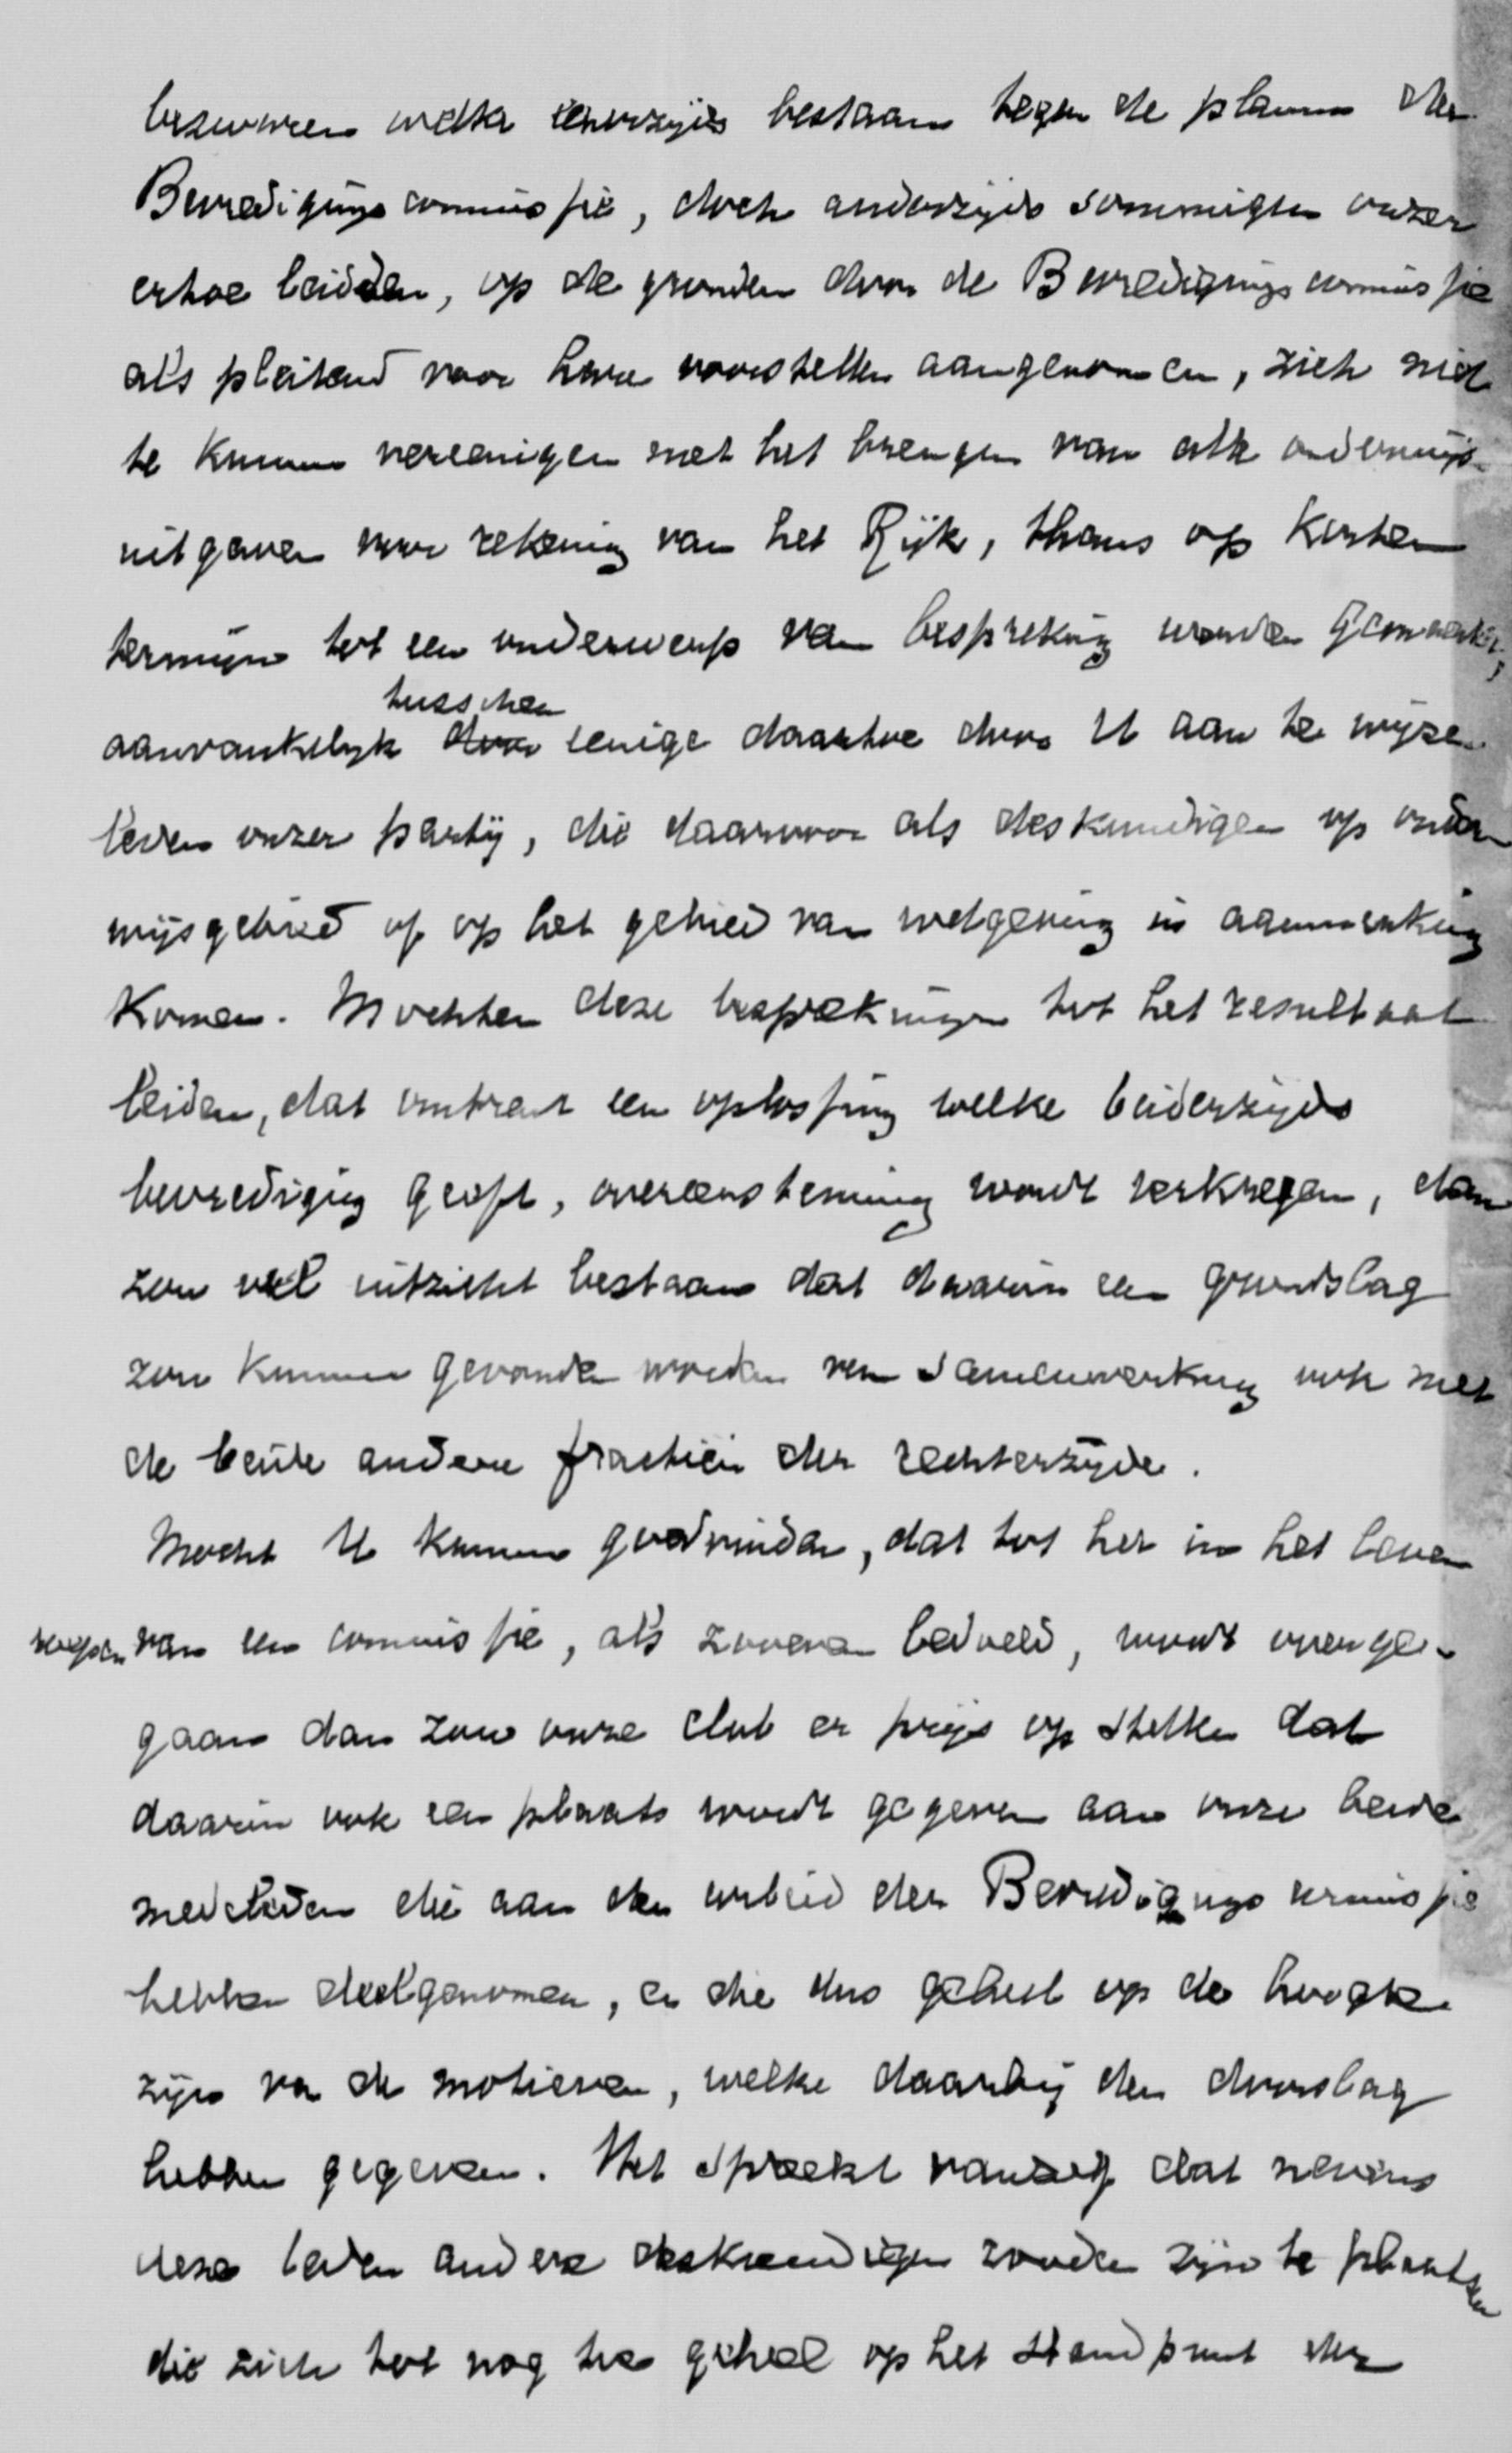 bezwaren welke eenerzijds bestaan tegen de plannen der
Bevredigingscommissie, doch anderzijds sommigen onzer
ertoe leidden, op de gronden door de Bevredigingscommissie
als pleitend voor hare voorstellen aangenomen, zich niet
te kunnen vereenigen met het brengen van alle onderwijs-
uitgaven voor rekening van het Rijk, thans op korten
termijn tot een onderwerp van bespreking worden gemaakt,
tusschen
aanvankelijk door eenige daartoe door U aan te wijzen
leden onzer partij, die daarvoor als deskundigen op onder
wijsgebied of op het gebied van wetgeving in aanmerking
komen. Mochten deze besprekingen tot het resultaat
leiden, dat omtrent een oplossing welke beiderzijds
bevrediging geeft, overeenstemming wordt verkregen, dan
zou wel uitzicht bestaan dat daarin een grondslag
zou kunnen gevonden worden van samenwerking ook met
de beide andere fractiën der rechterzijde.
Mocht U kunnen goedvinden, dat tot het in het leven
roepen van een commissie, als zooeven bedoeld, wordt overge-
gaan dan zou onze club er prijs op stellen dat
daarin ook een plaats wordt gegeven aan onze beide
medeleden die aan den arbeid der Bevredigingscommissie
hebben deelgenomen, en die dus geheel op de hoogte
zijn van de motieven, welke daarbij den doorslag
hebben gegeven. Het spreekt vanzelf dat nevens
deze leden andere deskundigen zouden zijn te plaatsen
die zich tot nog toe geheel op het standpunt der